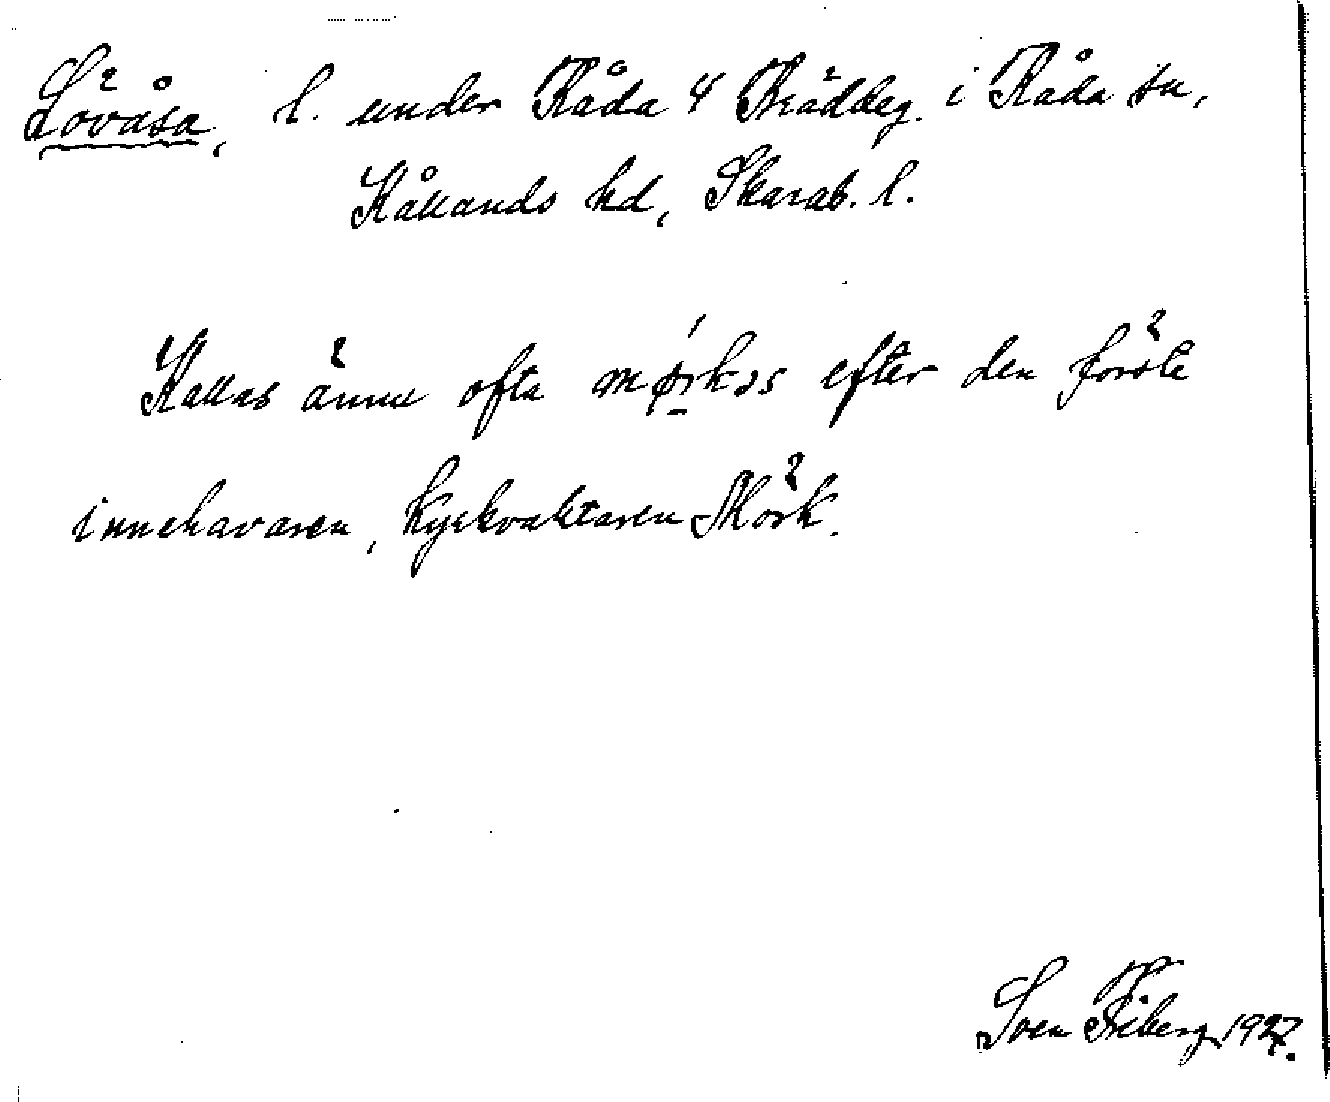 Lövåsa, l. under Råda 4 Bräddeg. i Råda sn,
Kållands hd, Skarab. l.
Kallas ännu ofta mørkɜs efter den förste
innehavaren, kyrkvaktaren Mörk.
Sven Friberg 1927.